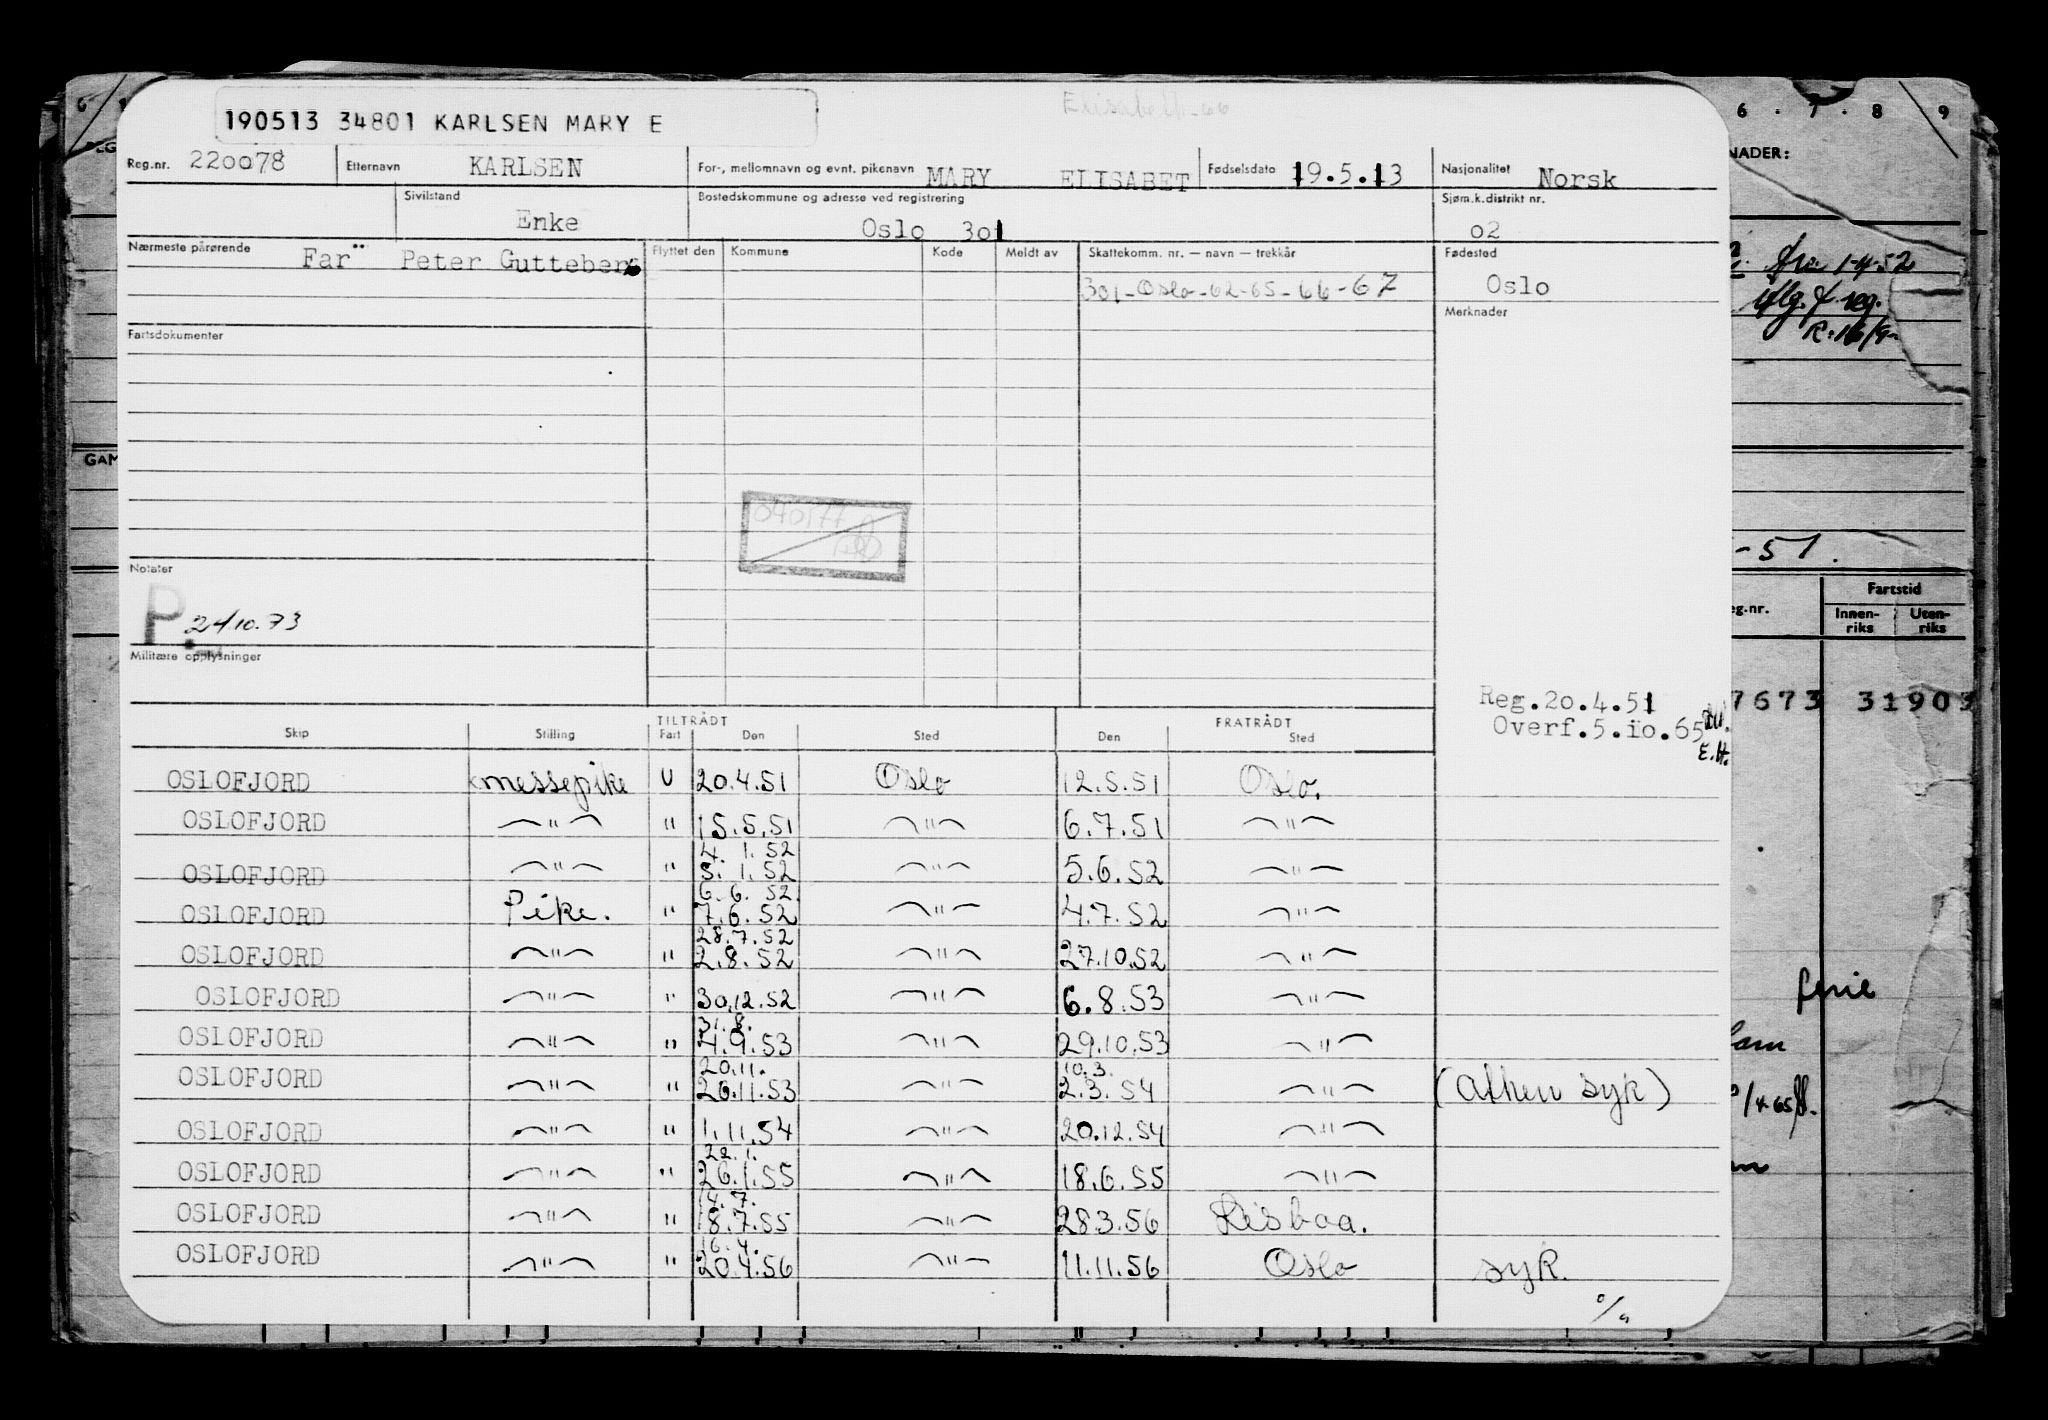 190513 34801 KARLSEN MARY E
Elisabeth-66
Reg.nr. 220078 Etternavn KARLSEN For-, mellomnavn og evnt. pikenavn MARY ELISABET Fødselsdato 19.5.13 Nasjonalitet Norsk
Sivilstand Enke Bostedskommune og adresse ved registrering Oslo 301 Sjøm.k.distrikt nr. 02
Nærmeste pårørende Far Peter Gutteberg Flyttet den Kommune Kode Meldt av Skattekomm. nr. — navn — trekkår Fødested
301-Oslo-62-65-66-67 Oslo
Merknader
Fartsdokumenter
040177
Notater
P. 24/10.73
Militære opplysninger
Reg.20.4.51
Overf.5.10.65
E.H.
TILTRÅDT FRATRÅDT
Skip Stilling Fart Den Sted Den Sted
OSLOFJORD messepike U 20.4.51 Oslo 12.5.51 Oslo.
OSLOFJORD " " 15.5.51 " 6.7.51 "
4.1.52
OSLOFJORD " " 5.1.52 " 5.6.52 "
6.6.52
OSLOFJORD Pike. " 7.6.52 " 4.7.52 "
28.7.52
OSLOFJORD " " 2.8.52 " 27.10.52 "
OSLOFJORD " " 30.12.52 " 6.8.53 "
31.8.
OSLOFJORD " " 4.9.53 " 29.10.53 "
20.11. 10.3.
OSLOFJORD " " 26.11.53 " 2.3.54 " (Athen syk)
OSLOFJORD " " 1.11.54 " 20.12.54 "
22.1.
OSLOFJORD " " 26.1.55 " 18.6.55 "
14.7.
OSLOFJORD " " 18.7.55 " 28.3.56 Lisboa.
16.4.
OSLOFJORD " " 20.4.56 " 11.11.56 Oslo syk.
6 . 7 . 8 9
NADER:
fra 1-4-52
R. 16/9-
-51.
eg.nr. Fartstid
Innen-riks Uten-riks
7673 31903
ferie
GAM